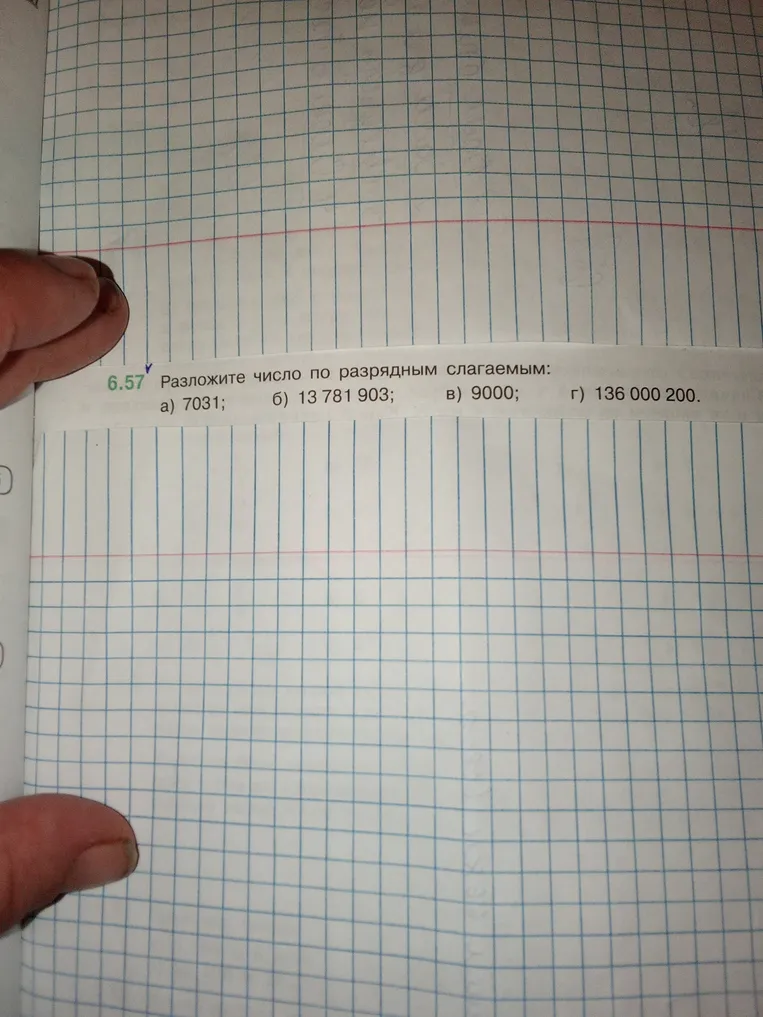 6.57 Разложите число по разрядным слагаемым:
а) 7031; б) 13 781 903; в) 9000; г) 136 000 200.